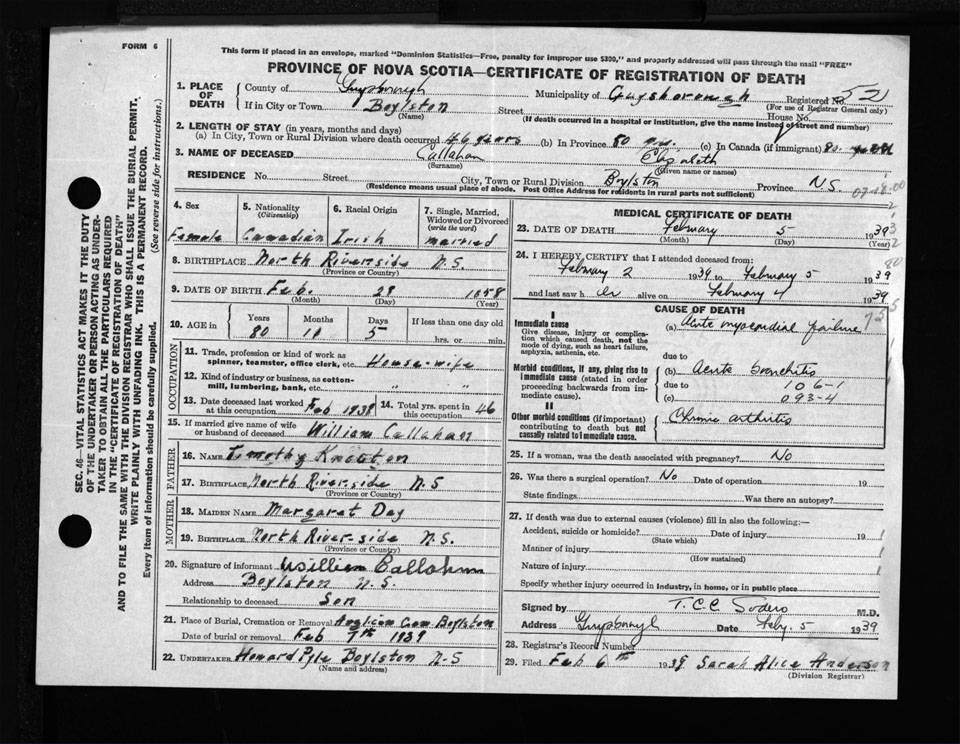 FORM 6
This form if placed in an envelope, marked "Dominion Statistics—Free, penalty for improper use $300," and properly addressed will pass through the mail "FREE"
PROVINCE OF NOVA SCOTIA—CERTIFICATE OF REGISTRATION OF DEATH
1. PLACE OF DEATH County of Guysborough Municipality of Guysborough Registered No. 521
(For use of Registrar General only)
If in City or Town Boylston Street House No.
(Name) (If death occurred in a hospital or institution, give the name instead of street and number)
2. LENGTH OF STAY (in years, months and days)
(a) In City, Town or Rural Division where death occurred 46 years (b) In Province 80 yrs. (c) In Canada (if immigrant) 80 years
3. NAME OF DECEASED Callahan Elizabeth
(Surname) (Given name or names)
RESIDENCE No. Street City, Town or Rural Division Boylston Province N.S.
(Residence means usual place of abode. Post Office Address for residents in rural parts not sufficient)
4. Sex 5. Nationality (Citizenship) 6. Racial Origin 7. Single, Married, Widowed or Divorced (write the word)
Female Canadian Irish married
8. BIRTHPLACE North Riverside N.S.
(Province or Country)
9. DATE OF BIRTH Feb. 28 1858
(Month) (Day) (Year)
10. AGE in Years Months Days If less than one day old
80 11 5 hrs. or min.
OCCUPATION
11. Trade, profession or kind of work as spinner, teamster, office clerk, etc. House-wife
12. Kind of industry or business, as cotton-mill, lumbering, bank, etc. " "
13. Date deceased last worked at this occupation Feb 1938 14. Total yrs. spent in this occupation 46
15. If married give name of wife or husband of deceased William Callahan
FATHER
16. NAME Timothy
17. BIRTHPLACE North Riverside N.S
(Province or Country)
MOTHER
18. MAIDEN NAME Margaret Day
19. BIRTHPLACE North River-side N.S.
(Province or Country)
20. Signature of informant William Callahan
Address Boylston N.S.
Relationship to deceased Son
21. Place of Burial, Cremation or Removal Anglican Cem Boylston
Date of burial or removal Feb 7th 1939
22. UNDERTAKER Howard Pyle Boylston N-S
(Name and address)
MEDICAL CERTIFICATE OF DEATH
23. DATE OF DEATH February 5 1939
(Month) (Day) (Year)
24. I HEREBY CERTIFY that I attended deceased from:
February 2 1939 to February 5 1939
and last saw her alive on February 4 1939
CAUSE OF DEATH
I
Immediate cause
Give disease, injury or complication which caused death, not the mode of dying, such as heart failure, asphyxia, asthenia, etc.
(a) Acute myocardial failure
due to
Morbid conditions, if any, giving rise to immediate cause (stated in order proceeding backwards from immediate cause).
(b) Acute bronchitis
due to 106-1
(c) 093-4
II
Other morbid conditions (if important) contributing to death but not causally related to immediate cause.
Chronic arthritis
25. If a woman, was the death associated with pregnancy? No
26. Was there a surgical operation? No Date of operation 19
State findings Was there an autopsy?
27. If death was due to external causes (violence) fill in also the following:—
Accident, suicide or homicide? Date of injury 19
(State which)
Manner of injury
(How sustained)
Nature of injury
Specify whether injury occurred in industry, in home, or in public place
Signed by T.C.C. Sodero M.D.
Address Guysboro Date Feby. 5 1939
28. Registrar's Record Number
29. Filed Feb 6th 1939 Sarah Alice Anderson
(Division Registrar)
SEC. 46—VITAL STATISTICS ACT MAKES IT THE DUTY
OF THE UNDERTAKER OR PERSON ACTING AS UNDER-
TAKER TO OBTAIN ALL THE PARTICULARS REQUIRED
IN THE "CERTIFICATE OF REGISTRATION OF DEATH"
AND TO FILE THE SAME WITH THE DIVISION REGISTRAR WHO SHALL ISSUE THE BURIAL PERMIT.
WRITE PLAINLY WITH UNFADING INK. THIS IS A PERMANENT RECORD.
Every item of information should be carefully supplied. (See reverse side for instructions.)